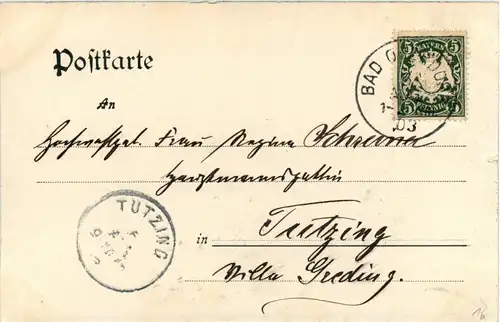 Postkarte
5 BAYERN 5
BAD
03
An
Hochwohlgeb. Frau Regina Schreiner
Hauptmannsgattin
in Tutzing
Villa Greding.
TUTZING
16